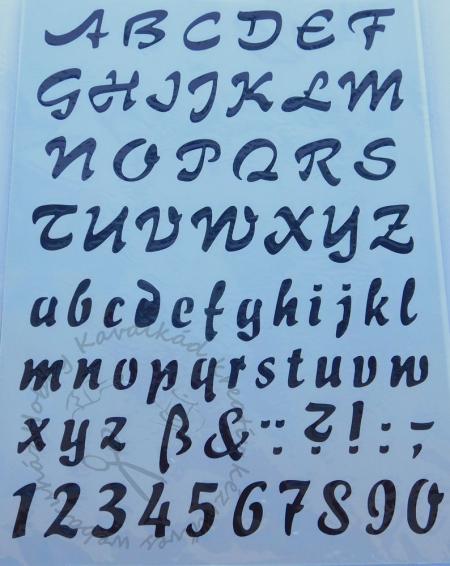 ABCDEF
GHIJKLM
NOPQRS
TUVWXYZ
abcdefghijkl
mnopqrstuvw
xyz ß&:?!:;-
1234567890